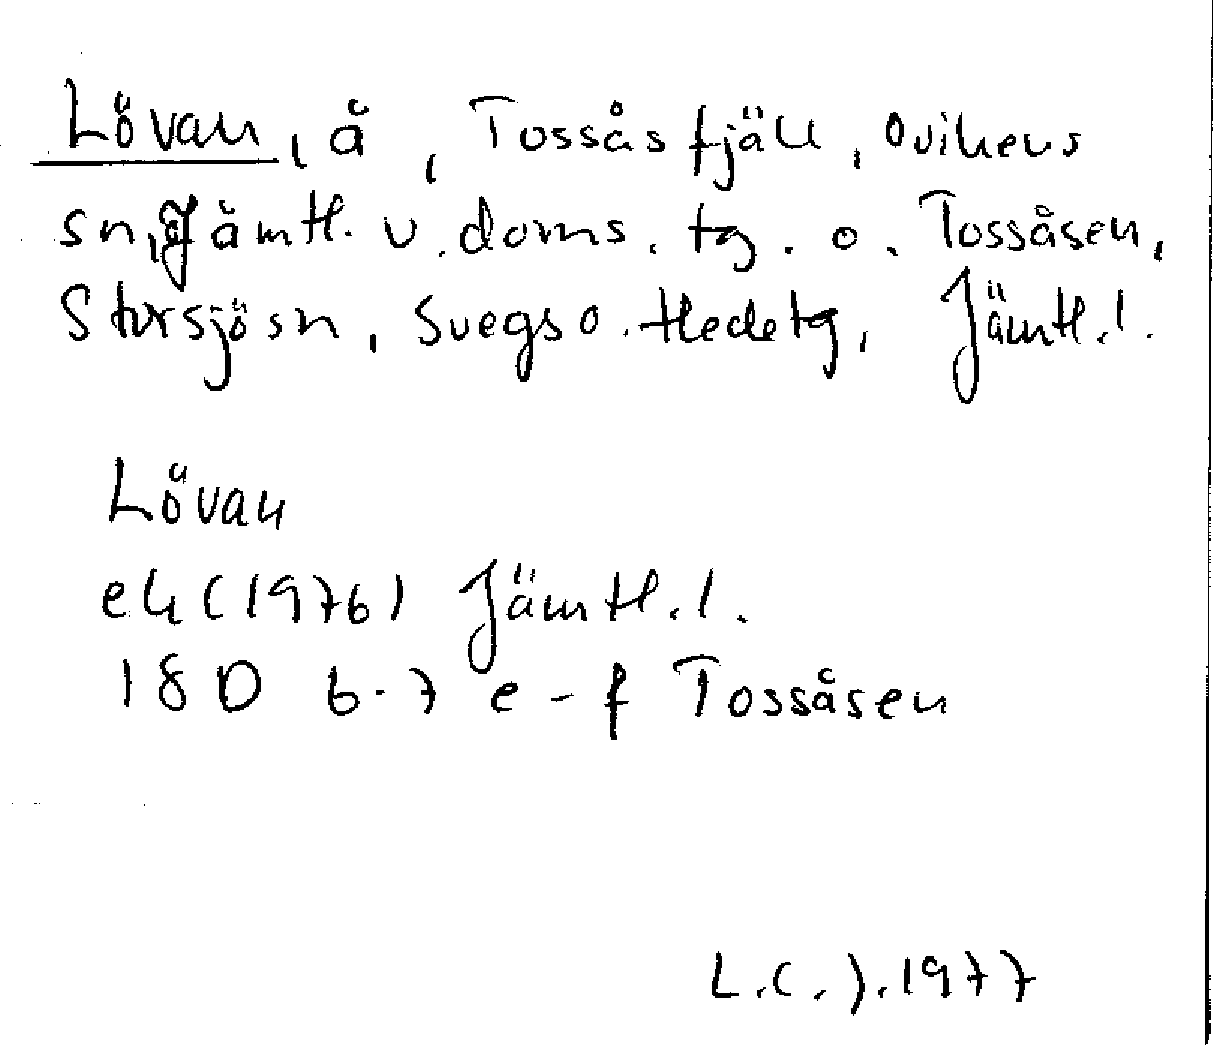 Lövan, å, Tossåsfjäll, Ovikens
sn, Jämtl. v. doms. tg. o. Tossåsen,
Storsjö sn, Svegs o. Hede tg, Jämtl. l.
Lövan
ek (1976) Jämtl. l.
18D 6-7 e-f Tossåsen
L.C.J. 1977